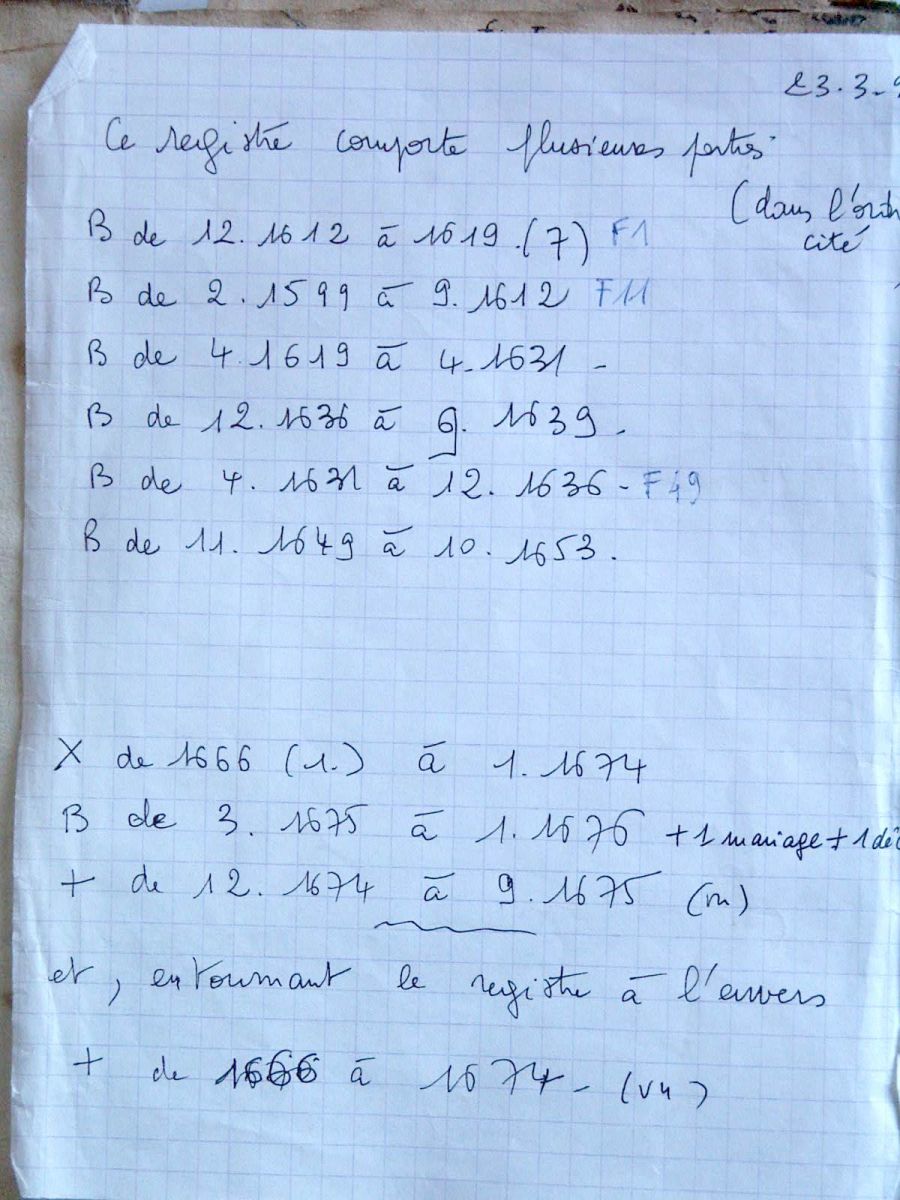 23.3.9
Ce registre comporte plusieurs parties
(dans l'ordr
cité
B de 12.1612 à 1619.(7) F1
B de 2.1599 à 9.1612 F11
B de 4.1619 à 4.1631 -
B de 12.1636 à 9. 1639.
B de 4. 1631 à 12. 1636 - F49
B de 11. 1649 à 10. 1653.
X de 1666 (1.) à 1. 1674
B de 3. 1675 à 1. 1676 +1 mariage + 1 déc
+ de 12. 1674 à 9. 1675 (m)
et, en tournant le registre à l'envers
+ de 1666 à 1674 - (vu)